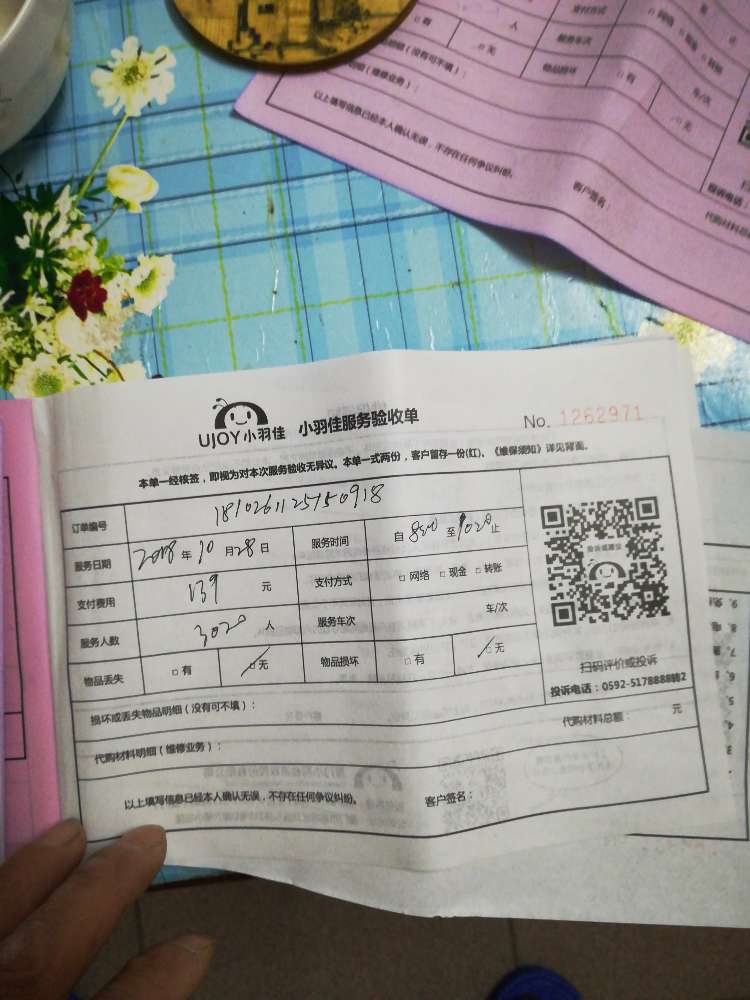 有 人 支付方式 网络
无 服务车次
明细（没有可不填）： 物品损坏 有 车/次
无
以上填写信息已经本人确认无误，不存在任何争议纠纷。 客户签名：
投诉电话
UJOY小羽佳 小羽佳服务验收单 No. 1262971
本单一经核签，即视为对本次服务验收无异议。本单一式两份，客户留存一份(红)。《维保须知》详见背面。
订单编号 1810261125150918
服务日期 2018年10月28日 服务时间 自 8:20 至 10:20 止
支付费用 139 元 支付方式 □网络 □现金 □转账
服务人数 3020 人 服务车次 车/次
物品丢失 □有 □无 物品损坏 □有 □无
扫码评价或投诉
投诉电话：0592-5178888转2
损坏或丢失物品明细（没有可不填）：
代购材料明细（维修业务）： 代购材料总额： 元
以上填写信息已经本人确认无误，不存在任何争议纠纷。 客户签名：